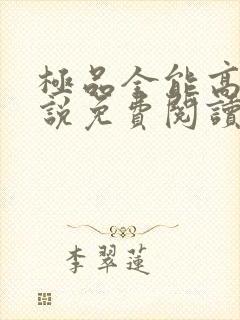 極品全能高
說免費閱讀
李翠蓮